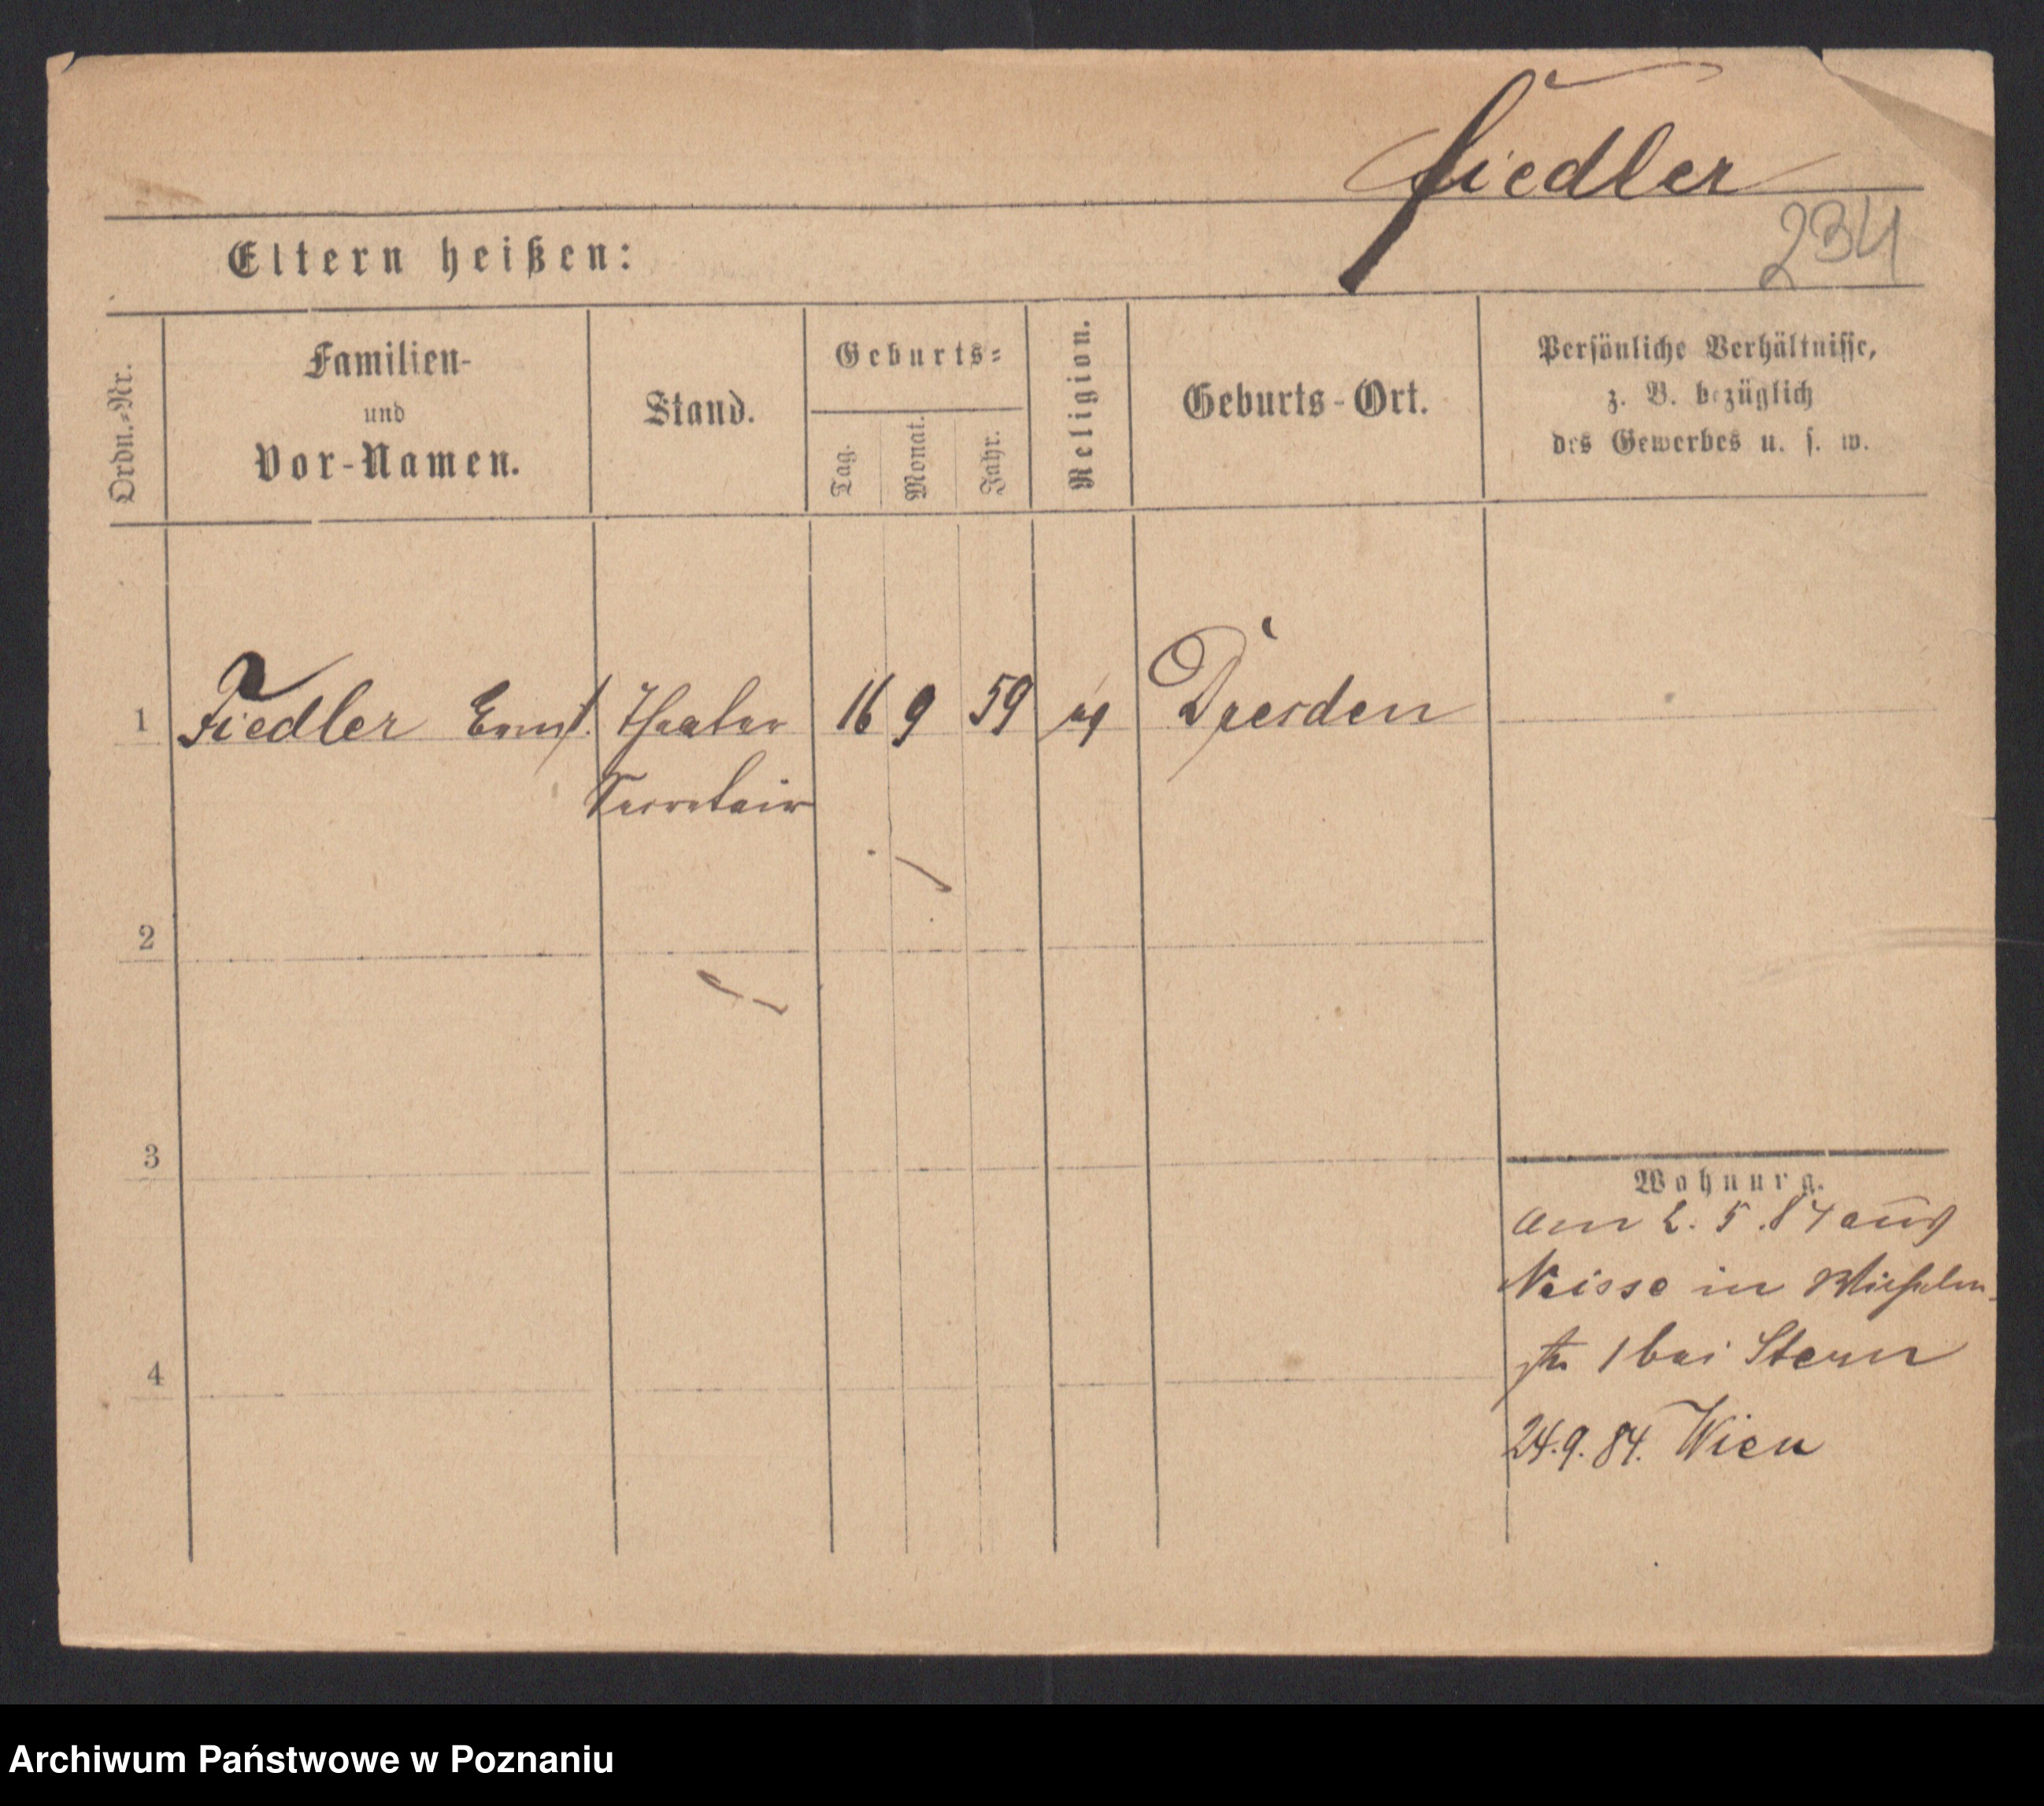 Fiedler
234
Eltern heißen:
Ordn.=Nr.
Familien-
und
Vor-Namen.
Stand.
Geburts=
Tag.
Monat.
Jahr.
Religion.
Geburts-Ort.
Persönliche Verhältnisse,
z. B. bezüglich
des Gewerbes u. s. w.
1 Fiedler Ernst. Theater 16 9 59 Dresden
Secretair
2
3
Wohnung.
am 2. 5. 84 aus
Neisse in Wilhelm-
str 1 bei Stern
4
24.9.84. Wien
Archiwum Państwowe w Poznaniu